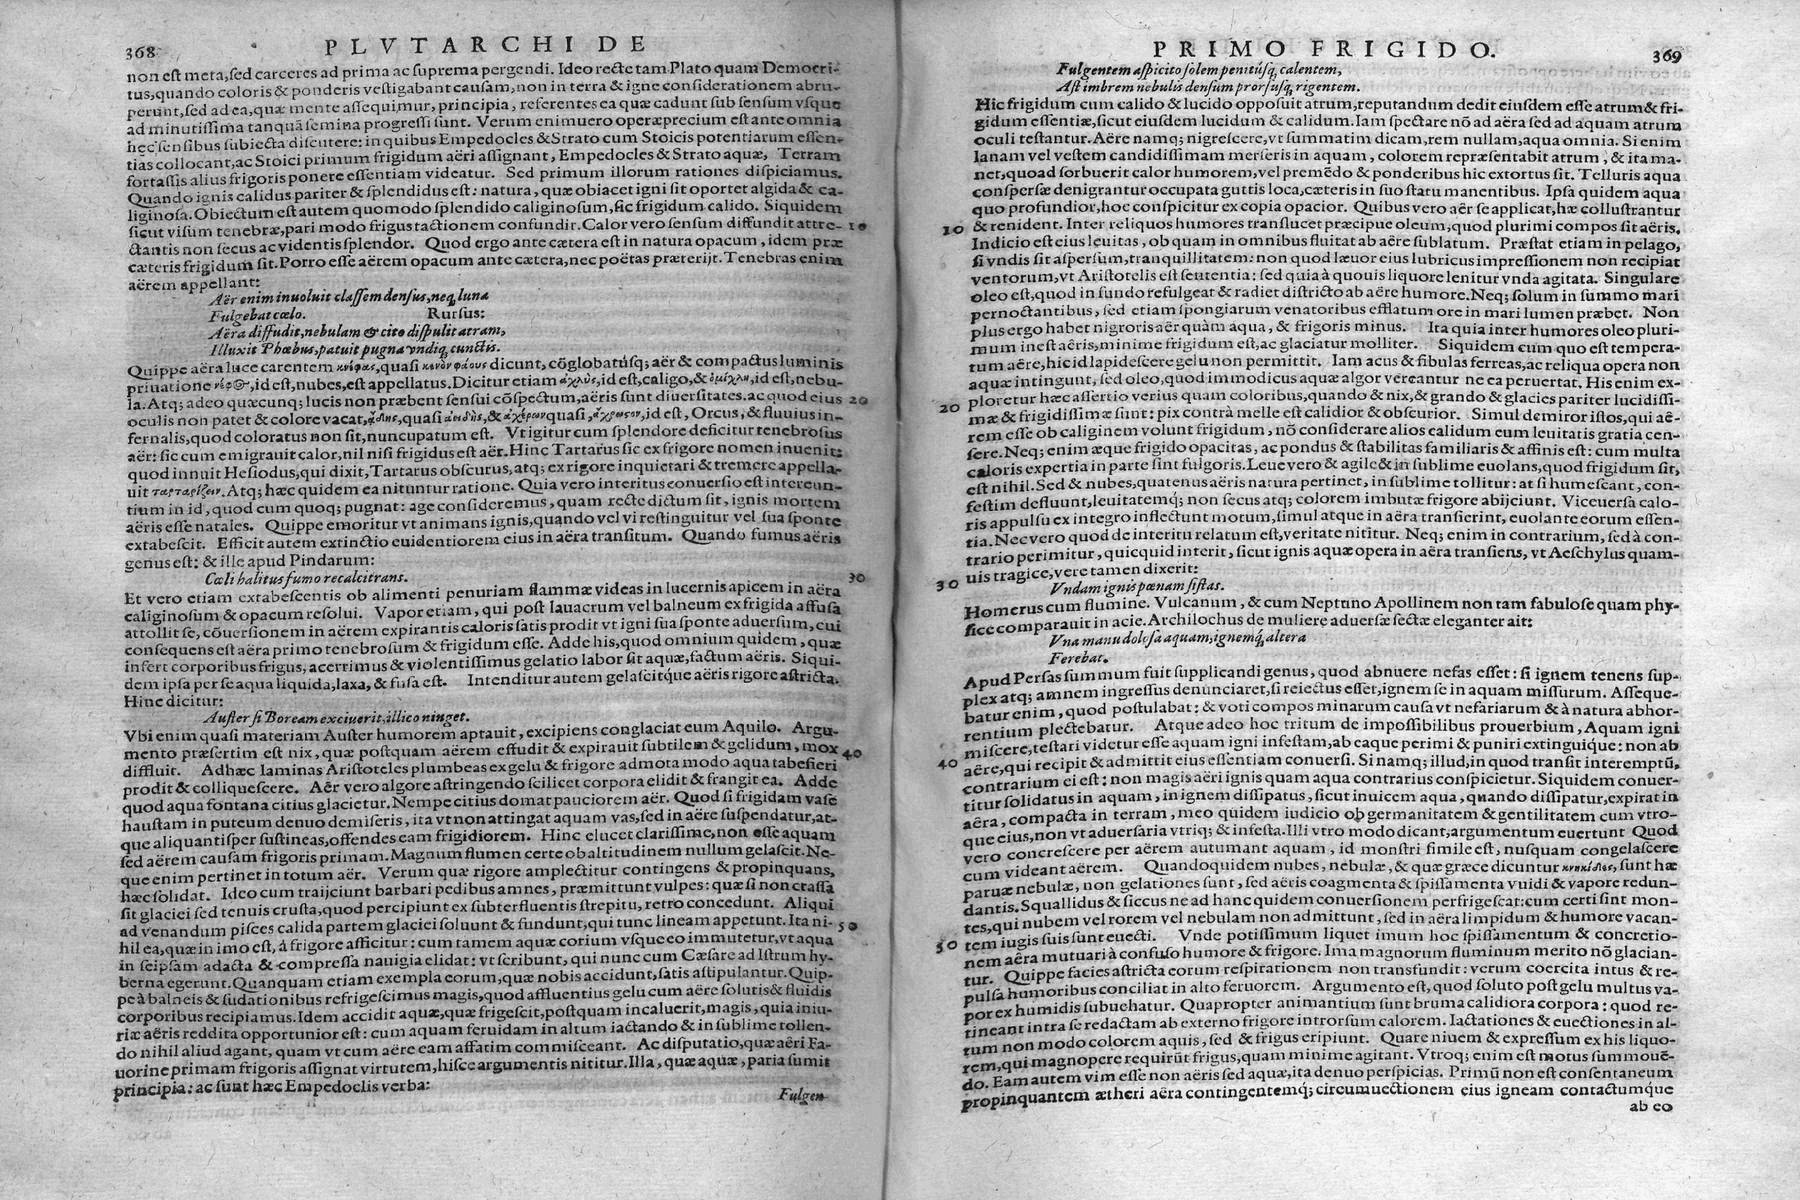 368 PLVTARCHI DE
non est meta, sed carceres ad prima ac suprema pergendi. Ideo recte tam Plato quam Democri-
tus, quando coloris & ponderis vestigabant causam, non in terra & igne considerationem abru-
perunt, sed ad ea, quæ mente assequimur, principia, referentes ea quæ cadunt sub sensum vsque
ad minutissima tanquã semina progressi sunt. Verum enimuero operæprecium est ante omnia
hęc sensibus subiecta discutere: in quibus Empedocles & Strato cum Stoicis potentiarum essen-
tias collocant, ac Stoici primum frigidum aëri assignant, Empedocles & Strato aquæ, Terram
fortassis alius frigoris ponere essentiam videatur. Sed primum illorum rationes dispiciamus.
Quando ignis calidus pariter & splendidus est: natura, quæ obiacet igni sit oportet algida & ca-
liginosa. Obiectum est autem quomodo splendido caliginosum, sic frigidum calido. Siquidem
sicut visum tenebræ, pari modo frigus tactionem confundit. Calor vero sensum diffundit attre- 10
ctantis non secus ac videntis splendor. Quod ergo ante cætera est in natura opacum, idem præ
cæteris frigidum sit. Porro esse aërem opacum ante cætera, nec poëtas præterijt. Tenebras enim
aërem appellant:
Aër enim inuoluit classem densus, neq; luna
Fulgebat cœlo. Rursus:
Aëra diffudit, nebulam & cito dispulit atram,
Illuxit Phœbus, patuit pugna vndiq; cunctis.
Quippe aëra luce carentem κνέφας, quasi κενὸν φάους dicunt, cõglobatúsq; aër & compactus luminis
priuatione νέφος, id est, nubes, est appellatus. Dicitur etiam ἀχλὺς, id est, caligo, & ὁμίχλη, id est, nebu-
la. Atq; adeo quæcunq; lucis non præbent sensui cõspectum, aëris sunt diuersitates. ac quod eius 20
oculis non patet & colore vacat, ᾅδης, quasi ἀειδὴς, & ἀχέρων quasi, ἄχρωςον, id est, Orcus, & fluuius in-
fernalis, quod coloratus non sit, nuncupatum est. Vt igitur cum splendore deficitur tenebrosus
aër: sic cum emigrauit calor, nil nisi frigidus est aër. Hinc Tartarus sic ex frigore nomen inuenit:
quod innuit Hesiodus, qui dixit, Tartarus obscurus, atq; ex rigore inquietari & tremere appella-
uit ταρταρίζειν. Atq; hæc quidem ea nituntur ratione. Quia vero interitus conuersio est intereun-
tium in id, quod cum quoq; pugnat: age consideremus, quam recte dictum sit, ignis mortem
aëris esse natales. Quippe emoritur vt animans ignis, quando vel vi restinguitur vel sua sponte
extabescit. Efficit autem extinctio euidentiorem eius in aëra transitum. Quando fumus aëris
genus est: & ille apud Pindarum:
Cœli halitus fumo recalcitrans. 30
Et vero etiam extabescentis ob alimenti penuriam flammæ videas in lucernis apicem in aëra
caliginosum & opacum resolui. Vapor etiam, qui post lauacrum vel balneum ex frigida affusa
attollit se, cõuersionem in aërem expirantis caloris satis prodit vt igni sua sponte aduersum, cui
consequens est aëra primo tenebrosum & frigidum esse. Adde his, quod omnium quidem, quæ
infert corporibus frigus, acerrimus & violentissimus gelatio labor sit aquæ, factum aëris. Siqui-
dem ipsa per se aqua liquida, laxa, & fusa est. Intenditur autem gelascitq́ue aëris rigore astricta.
Hinc dicitur:
Auster si Boream exciuerit, illico ninget.
Vbi enim quasi materiam Auster humorem aptauit, excipiens conglaciat eum Aquilo. Argu-
mento præsertim est nix, quæ postquam aërem effudit & expirauit subtilem & gelidum, mox 40
diffluit. Adhæc laminas Aristoteles plumbeas ex gelu & frigore admota modo aqua tabefieri
prodit & colliquescere. Aër vero algore astringendo scilicet corpora elidit & frangit ea. Adde
quod aqua fontana citius glacietur. Nempe citius domat pauciorem aër. Quod si frigidam vase
haustam in puteum denuo demiseris, ita vt non attingat aquam vas, sed in aëre suspendatur, at-
que aliquantisper sustineas, offendes eam frigidiorem. Hinc elucet clarissime, non esse aquam
sed aërem causam frigoris primam. Magnum flumen certe ob altitudinem nullum gelascit. Ne-
que enim pertinet in totum aër. Verum quæ rigore amplectitur contingens & propinquans,
hæc solidat. Ideo cum traijciunt barbari pedibus amnes, præmittunt vulpes: quæ si non crassa
sit glaciei sed tenuis crusta, quod percipiunt ex subterfluentis strepitu, retro concedunt. Aliqui
ad venandum pisces calida partem glaciei soluunt & fundunt, qui tunc lineam appetunt. Ita ni- 50
hil ea, quæ in imo est, à frigore afficitur: cum tamem aquæ corium vsque eo immutetur, vt aqua
in seipsam adacta & compressa nauigia elidat: vt scribunt, qui nunc cum Cæsare ad Istrum hy-
berna egerunt. Quanquam etiam exempla eorum, quæ nobis accidunt, satis astipulantur. Quip-
pe à balneis & sudationibus refrigescimus magis, quod affluentius gelu cum aëre solutis & fluidis
corporibus recipiamus. Idem accidit aquæ, quæ frigescit, postquam incaluerit, magis, quia iniu-
riæ aëris reddita opportunior est: cum aquam feruidam in altum iactando & in sublime tollen-
do nihil aliud agant, quam vt cum aëre eam affatim commisceant. Ac disputatio, quæ aëri Fa-
uorine primam frigoris assignat virtutem, hisce argumentis nititur. Illa, quæ aquæ, paria sumit
principia: ac sunt hæc Empedoclis verba:
Fulgen-
PRIMO FRIGIDO. 369
Fulgentem aspicito solem penitúsq; calentem,
Ast imbrem nebulis densum prorsusq; rigentem.
Hic frigidum cum calido & lucido opposuit atrum, reputandum dedit eiusdem esse atrum & fri-
gidum essentiæ, sicut eiusdem lucidum & calidum. Iam spectare nõ ad aëra sed ad aquam atrum
oculi testantur. Aëre namq; nigrescere, vt summatim dicam, rem nullam, aqua omnia. Si enim
lanam vel vestem candidissimam merseris in aquam, colorem repræsentabit atrum, & ita ma-
net, quoad sorbuerit calor humorem, vel premẽdo & ponderibus hic extortus sit. Telluris aqua
conspersæ denigrantur occupata guttis loca, cæteris in suo statu manentibus. Ipsa quidem aqua
quo profundior, hoc conspicitur ex copia opacior. Quibus vero aër se applicat, hæ collustrantur
10 & renident. Inter reliquos humores translucet præcipue oleum, quod plurimi compos sit aëris.
Indicio est eius leuitas, ob quam in omnibus fluitat ab aëre sublatum. Præstat etiam in pelago,
si vndis sit aspersum, tranquillitatem: non quod læuor eius lubricus impressionem non recipiat
ventorum, vt Aristotelis est sententia: sed quia à quouis liquore lenitur vnda agitata. Singulare
oleo est, quod in fundo refulgeat & radiet districto ab aëre humore. Neq; solum in summo mari
pernoctantibus, sed etiam spongiarum venatoribus efflatum ore in mari lumen præbet. Non
plus ergo habet nigroris aër quàm aqua, & frigoris minus. Ita quia inter humores oleo pluri-
mum inest aëris, minime frigidum est, ac glaciatur molliter. Siquidem cum quo est tempera-
tum aëre, hic id lapidescere gelu non permittit. Iam acus & fibulas ferreas, ac reliqua opera non
aquæ intingunt, sed oleo, quod immodicus aquæ algor vereantur ne ea peruertat. His enim ex-
20 ploretur hæc assertio verius quam coloribus, quando & nix, & grando & glacies pariter lucidissi-
mæ & frigidissimæ sunt: pix contrà melle est calidior & obscurior. Simul demiror istos, qui aë-
rem esse ob caliginem volunt frigidum, nõ considerare alios calidum eum leuitatis gratia cen-
sere. Neq; enim æque frigido opacitas, ac pondus & stabilitas familiaris & affinis est: cum multa
caloris expertia in parte sint fulgoris. Leue vero & agile & in sublime euolans, quod frigidum sit,
est nihil. Sed & nubes, quatenus aëris natura pertinet, in sublime tollitur: at si humescant, con-
festim defluunt, leuitatemq́; non secus atq; colorem imbutæ frigore abijciunt. Viceuersa calo-
ris appulsu ex integro inflectunt motum, simul atque in aëra transierint, euolante eorum essen-
tia. Nec vero quod de interitu relatum est, veritate nititur. Neq; enim in contrarium, sed à con-
trario perimitur, quicquid interit, sicut ignis aquæ opera in aëra transiens, vt Aeschylus quam-
30 uis tragice, vere tamen dixerit:
Vndam ignis pœnam sistas.
Homerus cum flumine. Vulcanum, & cum Neptuno Apollinem non tam fabulose quam phy-
sice comparauit in acie. Archilochus de muliere aduersæ sectæ eleganter ait:
Vna manu dolosa aquam, ignemq́; altera
Ferebat.
Apud Persas summum fuit supplicandi genus, quod abnuere nefas esset: si ignem tenens sup-
plex atq; amnem ingressus denunciaret, si reiectus esset, ignem se in aquam missurum. Asseque-
batur enim, quod postulabat: & voti compos minarum causa vt nefariarum & à natura abhor-
rentium plectebatur. Atque adeo hoc tritum de impossibilibus prouerbium, Aquam igni
miscere, testari videtur esse aquam igni infestam, ab eaque perimi & puniri extinguique: non ab
40 aëre, qui recipit & admittit eius essentiam conuersi. Si namq; illud, in quod transit interemptũ,
contrarium ei est: non magis aëri ignis quam aqua contrarius conspicietur. Siquidem conuer-
titur solidatus in aquam, in ignem dissipatus, sicut inuicem aqua, quando dissipatur, expirat in
aëra, compacta in terram, meo quidem iudicio ob germanitatem & gentilitatem cum vtro-
que eius, non vt aduersaria vtriq; & infesta. Illi vtro modo dicant, argumentum euertunt Quod
vero concrescere per aërem autumant aquam, id monstri simile est, nusquam congelascere
cum videant aërem. Quandoquidem nubes, nebulæ, & quæ græce dicuntur κηκίδες, sunt hæ
paruæ nebulæ, non gelationes sunt, sed aëris coagmenta & spissamenta vuidi & vapore redun-
dantis. Squallidus & siccus ne ad hanc quidem conuersionem perfrigescat: cum certi sint mon-
tes, qui nubem vel rorem vel nebulam non admittunt, sed in aëra limpidum & humore vacan-
50 tem iugis suis sunt euecti. Vnde potissimum liquet imum hoc spissamentum & concretio-
nem aëra mutuari à confuso humore & frigore. Ima magnorum fluminum merito nõ glacian-
tur. Quippe facies astricta eorum respirationem non transfundit: verum coercita intus & re-
pulsa humoribus conciliat in alto feruorem. Argumento est, quod soluto post gelu multus va-
por ex humidis subuehatur. Quapropter animantium sunt bruma calidiora corpora: quod re-
tineant intra se redactam ab externo frigore introrsum calorem. Iactationes & euectiones in al-
tum non modo colorem aquis, sed & frigus eripiunt. Quare niuem & expressum ex his liquo-
rem, qui magnopere requirũt frigus, quam minime agitant. Vtroq; enim est motus summouẽ-
do. Eam autem vim esse non aëris sed aquæ, ita denuo perspicias. Primũ non est consentaneum
propinquantem ætheri aëra contingentemq; circumuectionem eius igneam contactumque
ab eo